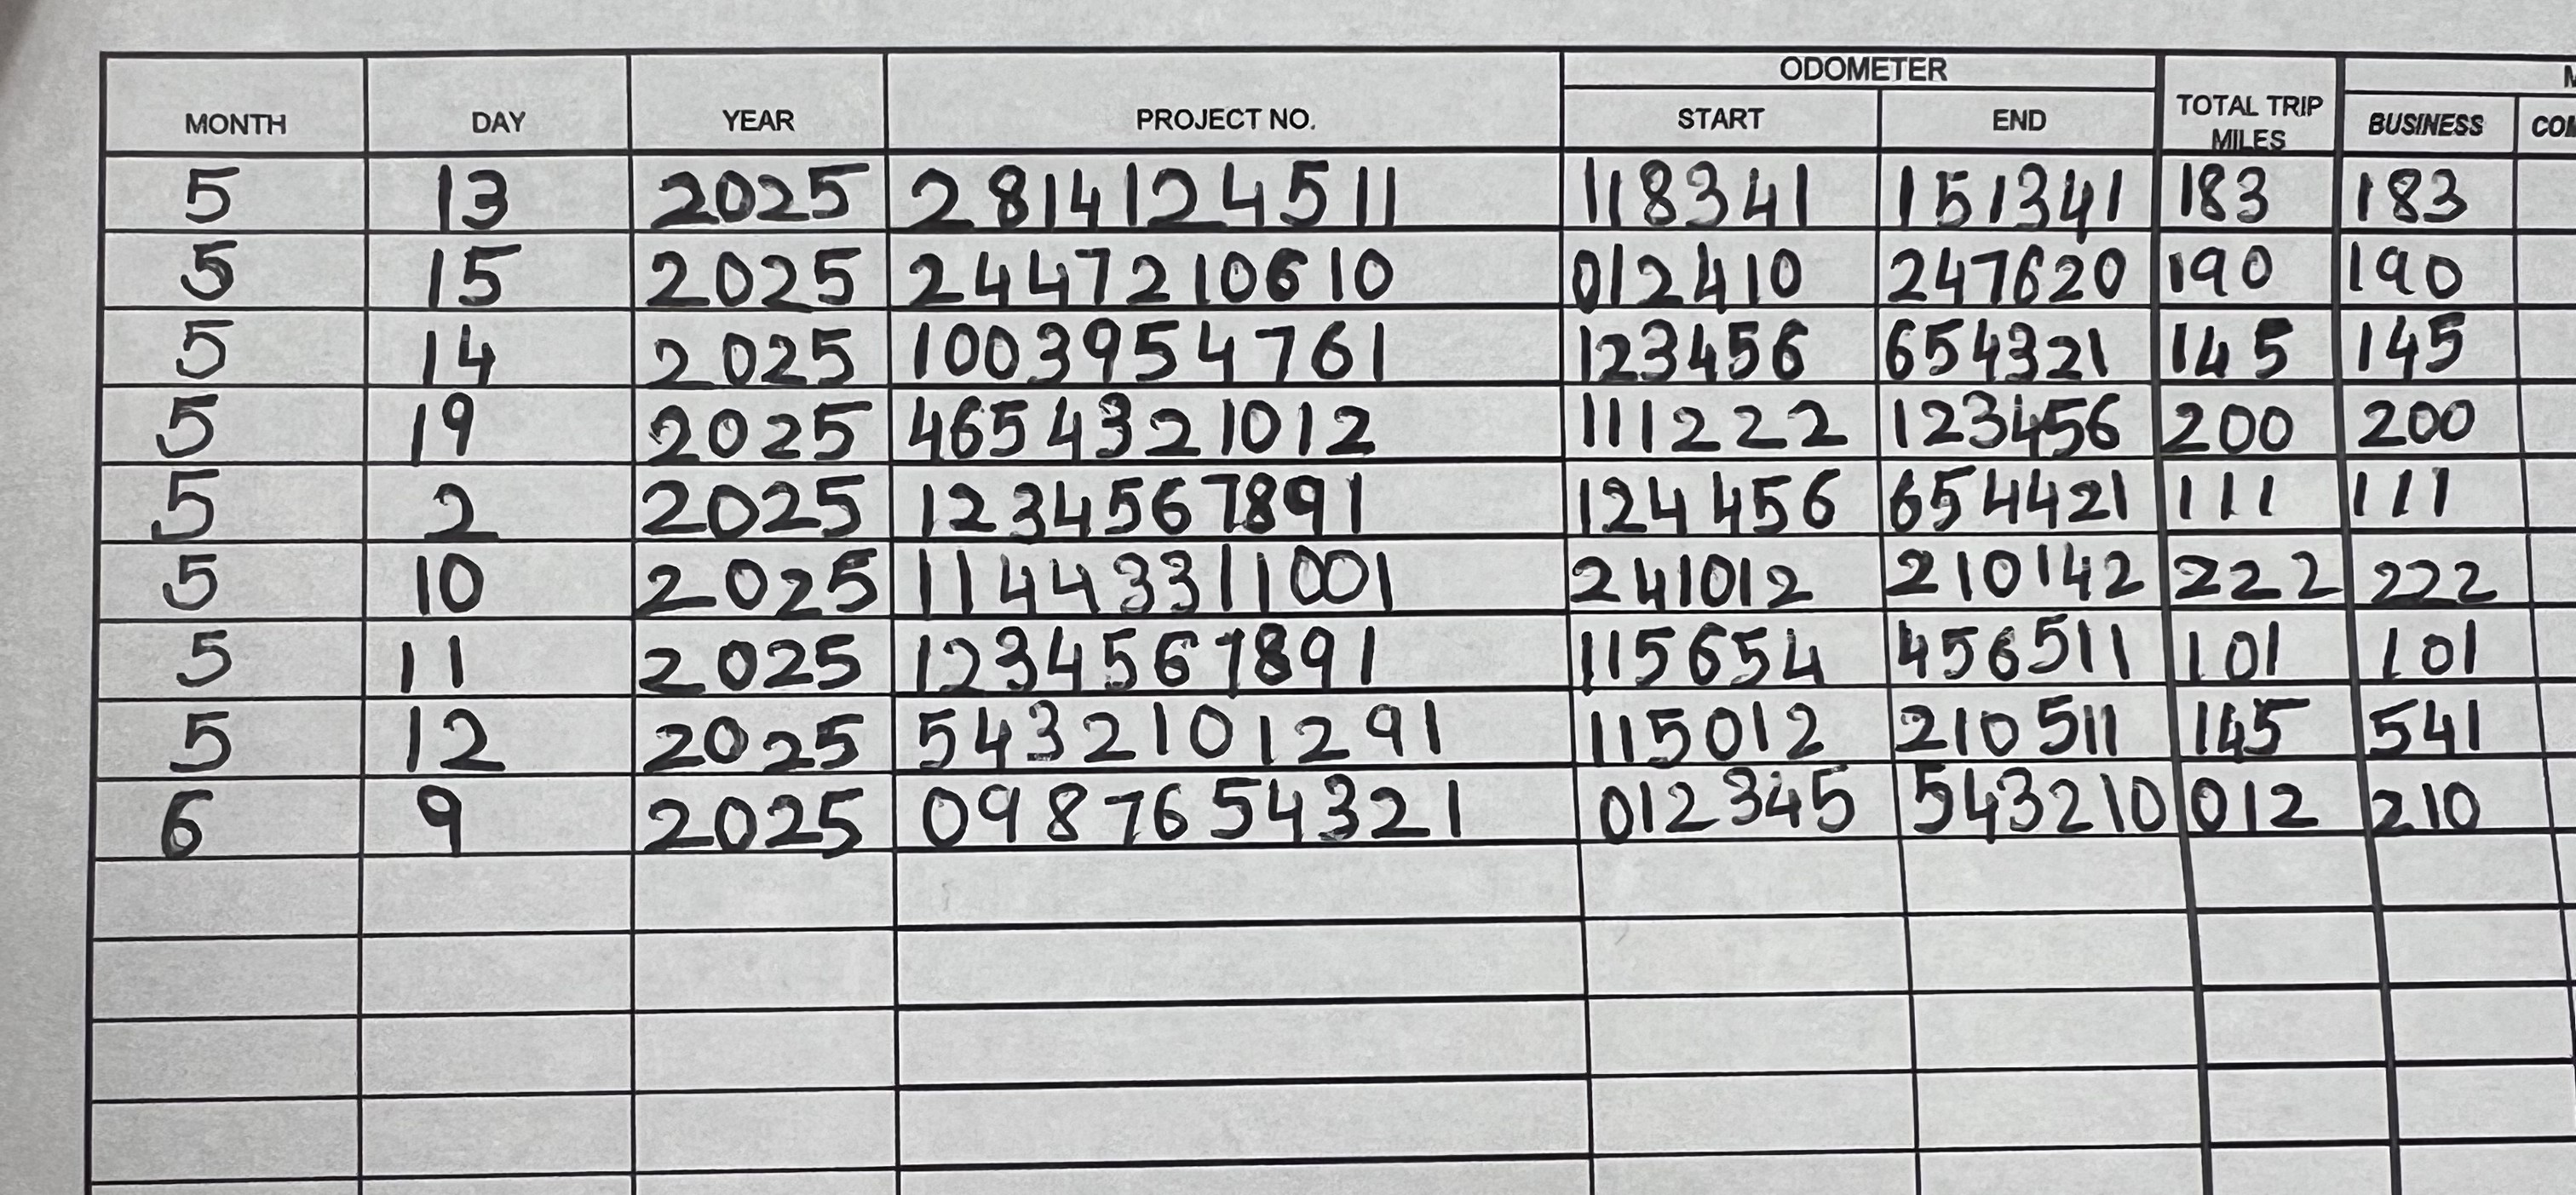 ODOMETER
MONTH DAY YEAR PROJECT NO. START END TOTAL TRIP MILES BUSINESS
5 13 2025 2814124511 118341 151341 183 183
5 15 2025 24472 10610 012410 247620 190 190
5 14 2025 1003954761 123456 654321 145 145
5 19 2025 4654321012 111222 123456 200 200
5 2 2025 1234567891 124456 654421 111 111
5 10 2025 11443311001 241012 210142 222 222
5 11 2025 1234567891 115654 456511 101 101
5 12 2025 5432101291 115012 210511 145 541
6 9 2025 0987654321 012345 543210 012 210